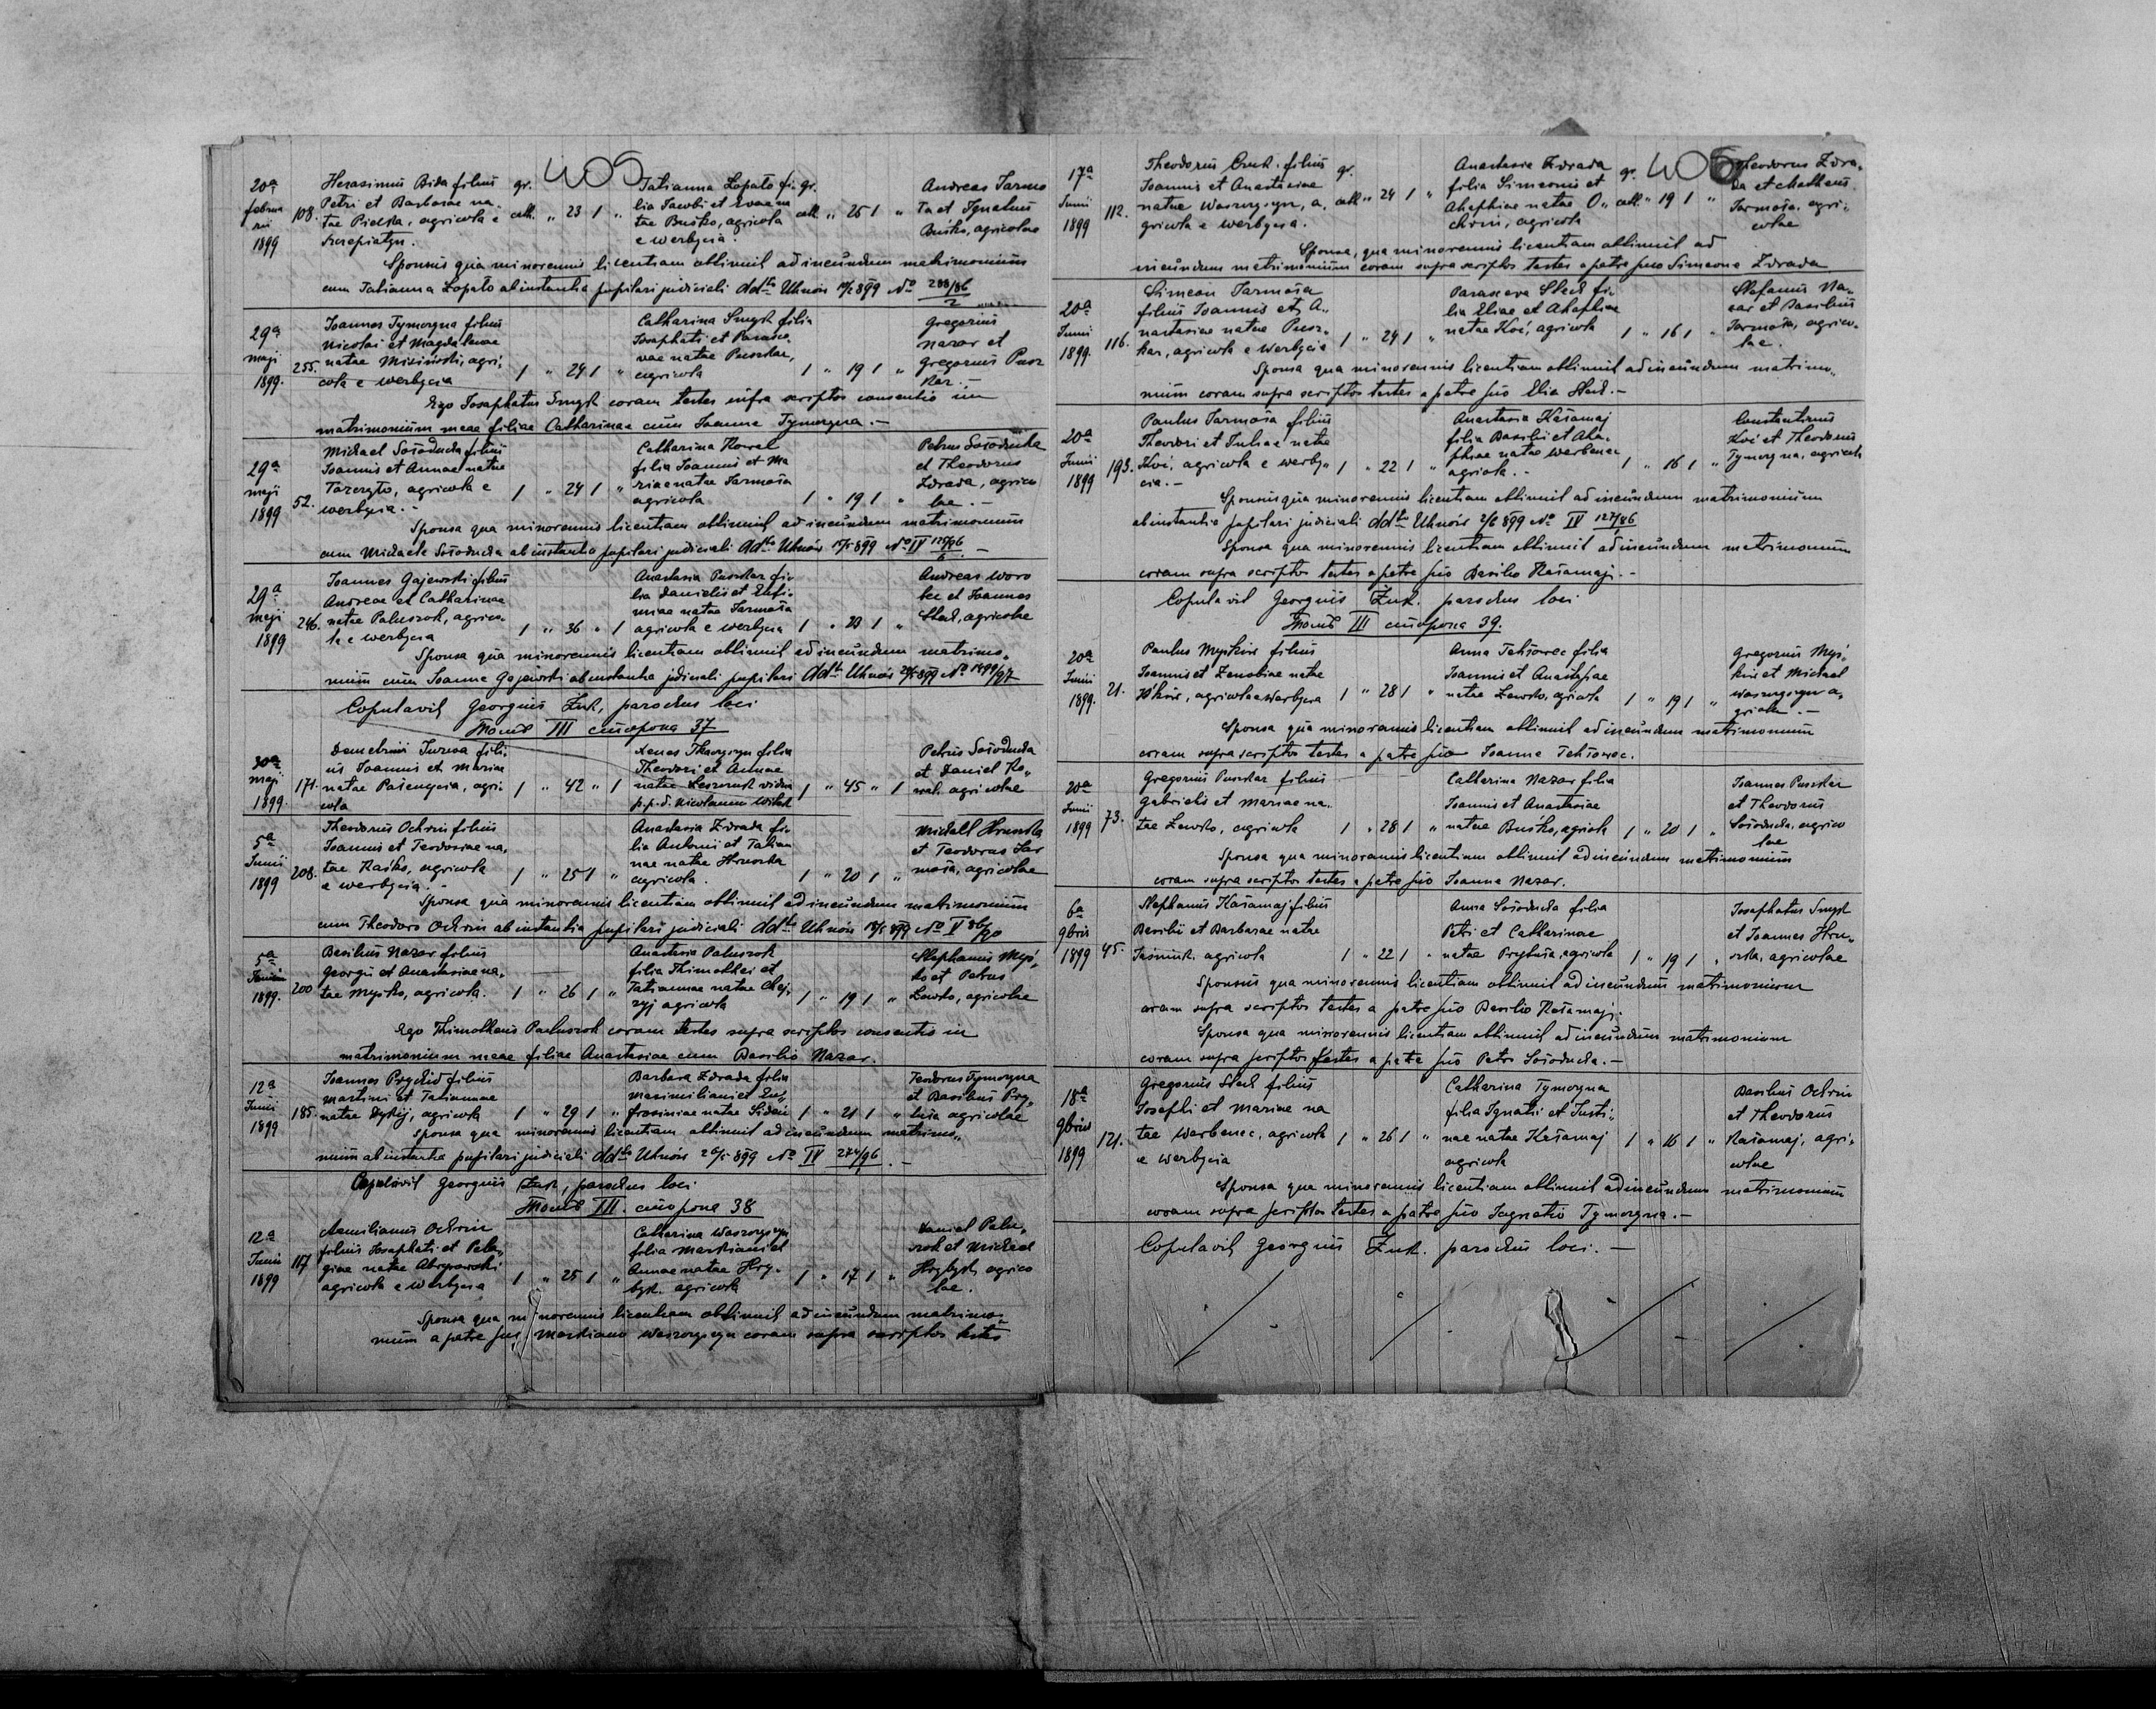 405
20a februarii 1899 108.
Herasimus Bida filius gr.
Petri et Barbarae na-
tae Pielska, agricola e cath. " 23 1 "
Szczepiatyn.
Tatianna Łopato fi- gr.
lia Jacobi et Evae na
tae Buśko, agricola cath. " 25 1 "
e Werbycia.
Andreas Jarmo
ta et Ignatius
Buśko, agricolae
Sponsus qua minorennis licentiam obtinuit ad ineundum matrimonium
cum Tatianna Łopato ab instantia pupilari judiciali ddto Uhnów 899 No 288/86 2
29a maji 1899. 255.
Joannes Tymoczna filius
Nicolai et Magdalenae
natae Misiński, agri-
cola e Werbycia 1 " 24 1 "
Catharina Smyk filia
Josaphati et Parasce-
vae natae Puszkar,
agricola 1 " 19 1 "
Gregorius
Nazar et
Gregorius Pusz
kar.
Ego Josaphatus Smyk coram testes infra scriptos consentio in
matrimonium meae filiae Catharinae cum Joanne Tymoczna. —
29a maji 1899 52.
Michael Sołoducha filius
Joannis et Annae natae
agricola e 1 " 24 1 "
Werbycia. -
Catharina Kowal
filia Joannis et Ma
riae natae Jarmoła
agricola 1 " 19 1 "
Petrus Sołoducha
et Theodorus
Zdrada, agrico
lae. —
Sponsa qua minorennis licentiam obtinuit ad ineundum matrimonium
cum Michaele Sołoducha ab instantia pupilari judiciali ddto Uhnów 899 No IV —
29a maji 1899 246.
Joannes Gajewski filius
Andreae et Catharinae
natae Paluszok, agrico-
la e Werbycia 1 " 36 " 1
Anastasia Puszkar fi-
lia Danielis et Eufi-
miae natae Jarmoła
agricola e Werbycia 1 " 23 1 "
Andreas Woro
bec et Joannes
Stech, agricolae
Sponsa qua minorennis licentiam obtinuit ad ineundum matrimo-
nium cum Joanne Gajewski ab instantia judiciali pupilari ddto Uhnów 899 No
Copulavit Georgius Żuk, parochus loci
Томъ III сторона 37
30a maji 1899. 171.
Demetrius Jurosa fili-
us Joannis et Mariae
natae Pasengcia, agri- 1 " 42 " 1
cola
Xenes Tkaczyszyn filia
Theodori et Annae
natae vidua 1 " 45 " 1
p. p. d. Nicolaum
Petrus Sołoducha
et Daniel Ko-
wal. agricolae
5a Junii 1899 208.
Theodorus Ochrin filius
Joannis et Teodosiae na-
tae Raśko, agricola 1 " 25 1 "
e Werbycia. -
Anastasia Zdrada fi-
lia Antonii et Tatian
nae natae Hrunska
agricola. 1 " 20 1 "
Michaël Hrunska
et Teodorus Jar
moła, agricolae
Sponsa qua minorennis licentiam obtinuit ad ineundum matrimonium
cum Theodoro Ochrin ab instantia pupilari judiciali ddto Uhnów 899 No V 86/90
5a Junii 1899. 200
Basilius Nazar filius
Georgii et Anastasiae na-
tae Myśko, agricola. 1 " 26 1 "
Anastasia Paluszok
filia Thimothei et
Tatiannae natae
agricola 1 " 19 1 "
Stephanus Myś-
ko et Petrus
Lewko, agricolae
Ego Thimotheus Paluszok coram testes supra scriptos consentio in
matrimonium meae filiae Anastasiae cum Basilio Nazar.
12a Junii 1899 185.
Joannes Prychid filius
Martini et Tatiannae
natae Dykij, agricola 1 " 29 1 "
Barbara Zdrada filia
Maximiliani et Eu-
frosiniae natae 1 " 21 1 "
Teodorus Tymoczna
et Basilius Pry-
agricolae
Sponsa qua minorennis licentiam obtinuit ad ineundum matrimo-
nium ab instantia pupilari judiciali ddto Uhnów 899 No IV 274/96. —
Copulavit Georgius Żuk, parochus loci
Томъ III. сторона 38
12a Junii 1899 117
Aemilianus Ochrin
filius Josaphati et Pela-
giae natae
agricola e Werbycia 1 " 25 1 "
Catharina Waszczyszyn
filia Markiani et
Annae natae Hry-
byk. agricola 1 " 17 1 "
Daniel Palu-
szok et Michael
Hrybyk agrico
lae.
Sponsa qua minorennis licentiam obtinuit ad ineundum matrimo-
nium a patre suo Markiano Waszczyszyn coram supra scriptos testes
406
17a Junii 1899 112.
Theodorus Czuk. filius gr.
Joannis et Anastasiae
natae Waszczyszyn, a- cath " 24 1 "
gricola e Werbycia.
Anastasia Zdrada gr.
filia Simeonis et
Ahaphiae natae O- cath. " 19 1 "
chrin, agricola
Theodorus Zdra-
da et Matheus
Jarmoła. agri-
colae
Sponsa, qua minorennis licentiam obtinuit ad
ineundum matrimonium coram supra scriptos testes a patre suo Simeone Zdrada
20a Junii 1899. 116.
Simeon Jarmoła
filius Joannis et A-
nastasiae natae Pusz-
kar, agricola e Werbycia 1 " 24 1 "
Parasceva Stech fi-
lia Eliae et Ahaphiae
natae Koć, agricola 1 " 16 1 "
Stefanus Na-
zar et Basilius
Jarmoła, agrico-
lae.
Sponsa qua minorennis licentiam obtinuit ad ineundum matrimo-
nium coram supra scriptos testes a patre suo Elia Stech. —
20a Junii 1899 193.
Paulus Jarmoła filius
Theodori et Juliae natae
Koć, agricola e Werby- 1 " 22 1 "
cia. —
Anastasia Kałamaj
filia Basilii et Aha-
phiae natae Werbenec
agricola. - 1 " 16 1 "
Constantinus
Koć et Theodorus
Tymoczna, agricolae
Sponsus qua minorennis licentiam obtinuit ad ineundum matrimonium
ab instantia pupilari judiciali ddto Uhnów 2/6 899 No IV 127/86
Sponsa qua minorennis licentiam obtinuit ad ineundum matrimonium
coram supra scriptos testes a patre suo Basilio Kałamaj. -
Copulavit Georgius Żuk. parochus loci
Томъ III сторона 39.
20a Junii 1899. 21.
Paulus Myśkiw filius
Joannis et Zenobiae natae
agricola e Werbycia 1 " 28 1 "
Anna Tehłowec filia
Joannis et Anastasiae
natae Lewko, agricola 1 " 19 1 "
Gregorius Myś-
kiw et Michael
Waszczyszyn a-
gricolae. —
Sponsa qua minorennis licentiam obtinuit ad ineundum matrimonium
coram supra scriptos testes a patre suo Joanne Tehłowec.
20a Junii 1899 73.
Gregorius Puszkar filius
Gabrielis et Mariae na-
tae Lewko, agricola 1 " 28 1 "
Catharina Nazar filia
Joannis et Anastasiae
natae Buśko, agricola 1 " 20 1 "
Joannes Puszkar
et Theodorus
Sołoducha, agrico
lae
Sponsa qua minorennis licentiam obtinuit ad ineundum matrimonium
coram supra scriptos testes a patre suo Joanne Nazar.
6a 9bris 1899 45.
Stephanus Kałamaj filius
Basilii et Barbarae natae
Jaśniuk. agricola 1 " 22 1 "
Anna Sołoducha filia
Petri et Catharinae
natae Prytuła, agricola 1 " 19 1 "
Josaphatus Smyk
et Joannes Hru-
nska, agricolae
Sponsus qua minorennis licentiam obtinuit ad ineundum matrimonium
coram supra scriptos testes a patre suo Basilio Kałamaj.
Sponsa qua minorennis licentiam obtinuit ad ineundum matrimonium
coram supra scriptos testes a patre suo Petro Sołoducha. —
18a 9bris 1899 121.
Gregorius Stech filius
Josephi et Mariae na
tae Werbenec, agricola 1 " 26 1 "
e Werbycia
Catharina Tymoczna
filia Ignatii et Justi-
nae natae Kałamaj 1 " 16 1 "
agricola
Basilius Ochrin
et Theodorus
Kałamaj, agri-
colae
Sponsa qua minorennis licentiam obtinuit ad ineundum matrimonium
coram supra scriptos testes a patre suo Ingnatio Tymoczna. —
Copulavit Georgius Żuk. parochus loci. —